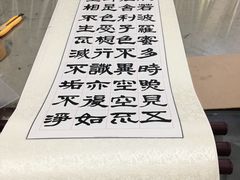 若波羅蜜多時照見五
舍利子色不異空空不
是色受想行識亦復如
相不生不滅不垢不淨